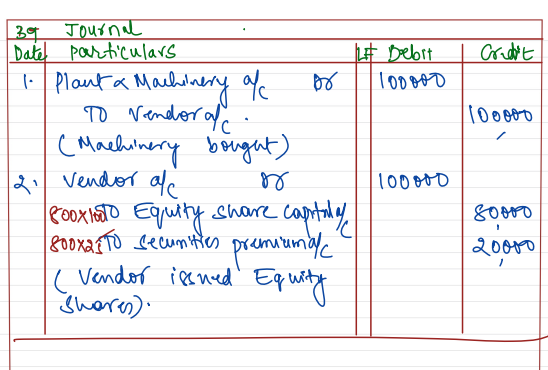 39 Journal
Date Particulars LF Debit Credit
1. Plant & Machinery a/c Dr 100000
To Vendor a/c. 100000
(Machinery bought)
2. Vendor a/c Dr 100000
800x100 To Equity share capital a/c 80000
800x25 To Securities premium a/c 20000
(Vendor issued Equity
Shares).